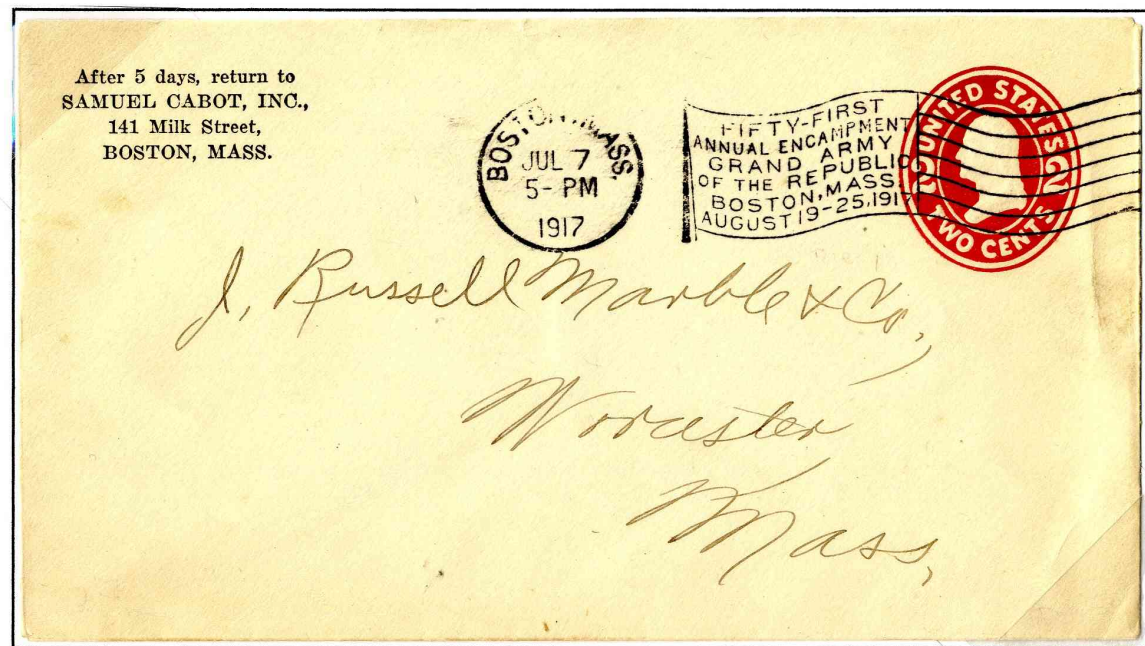 After 5 days, return to
SAMUEL CABOT, INC.,
141 Milk Street,
BOSTON, MASS.
BOSTON, MASS.
JUL 7
5-PM
1917
FIFTY-FIRST
ANNUAL ENCAMPMENT
GRAND ARMY
OF THE REPUBLIC
BOSTON, MASS.
AUGUST 19-25, 191
UNITED STATES
2 2
TWO CENTS
J. Russell Marble & Co.,
Worcester
Mass.